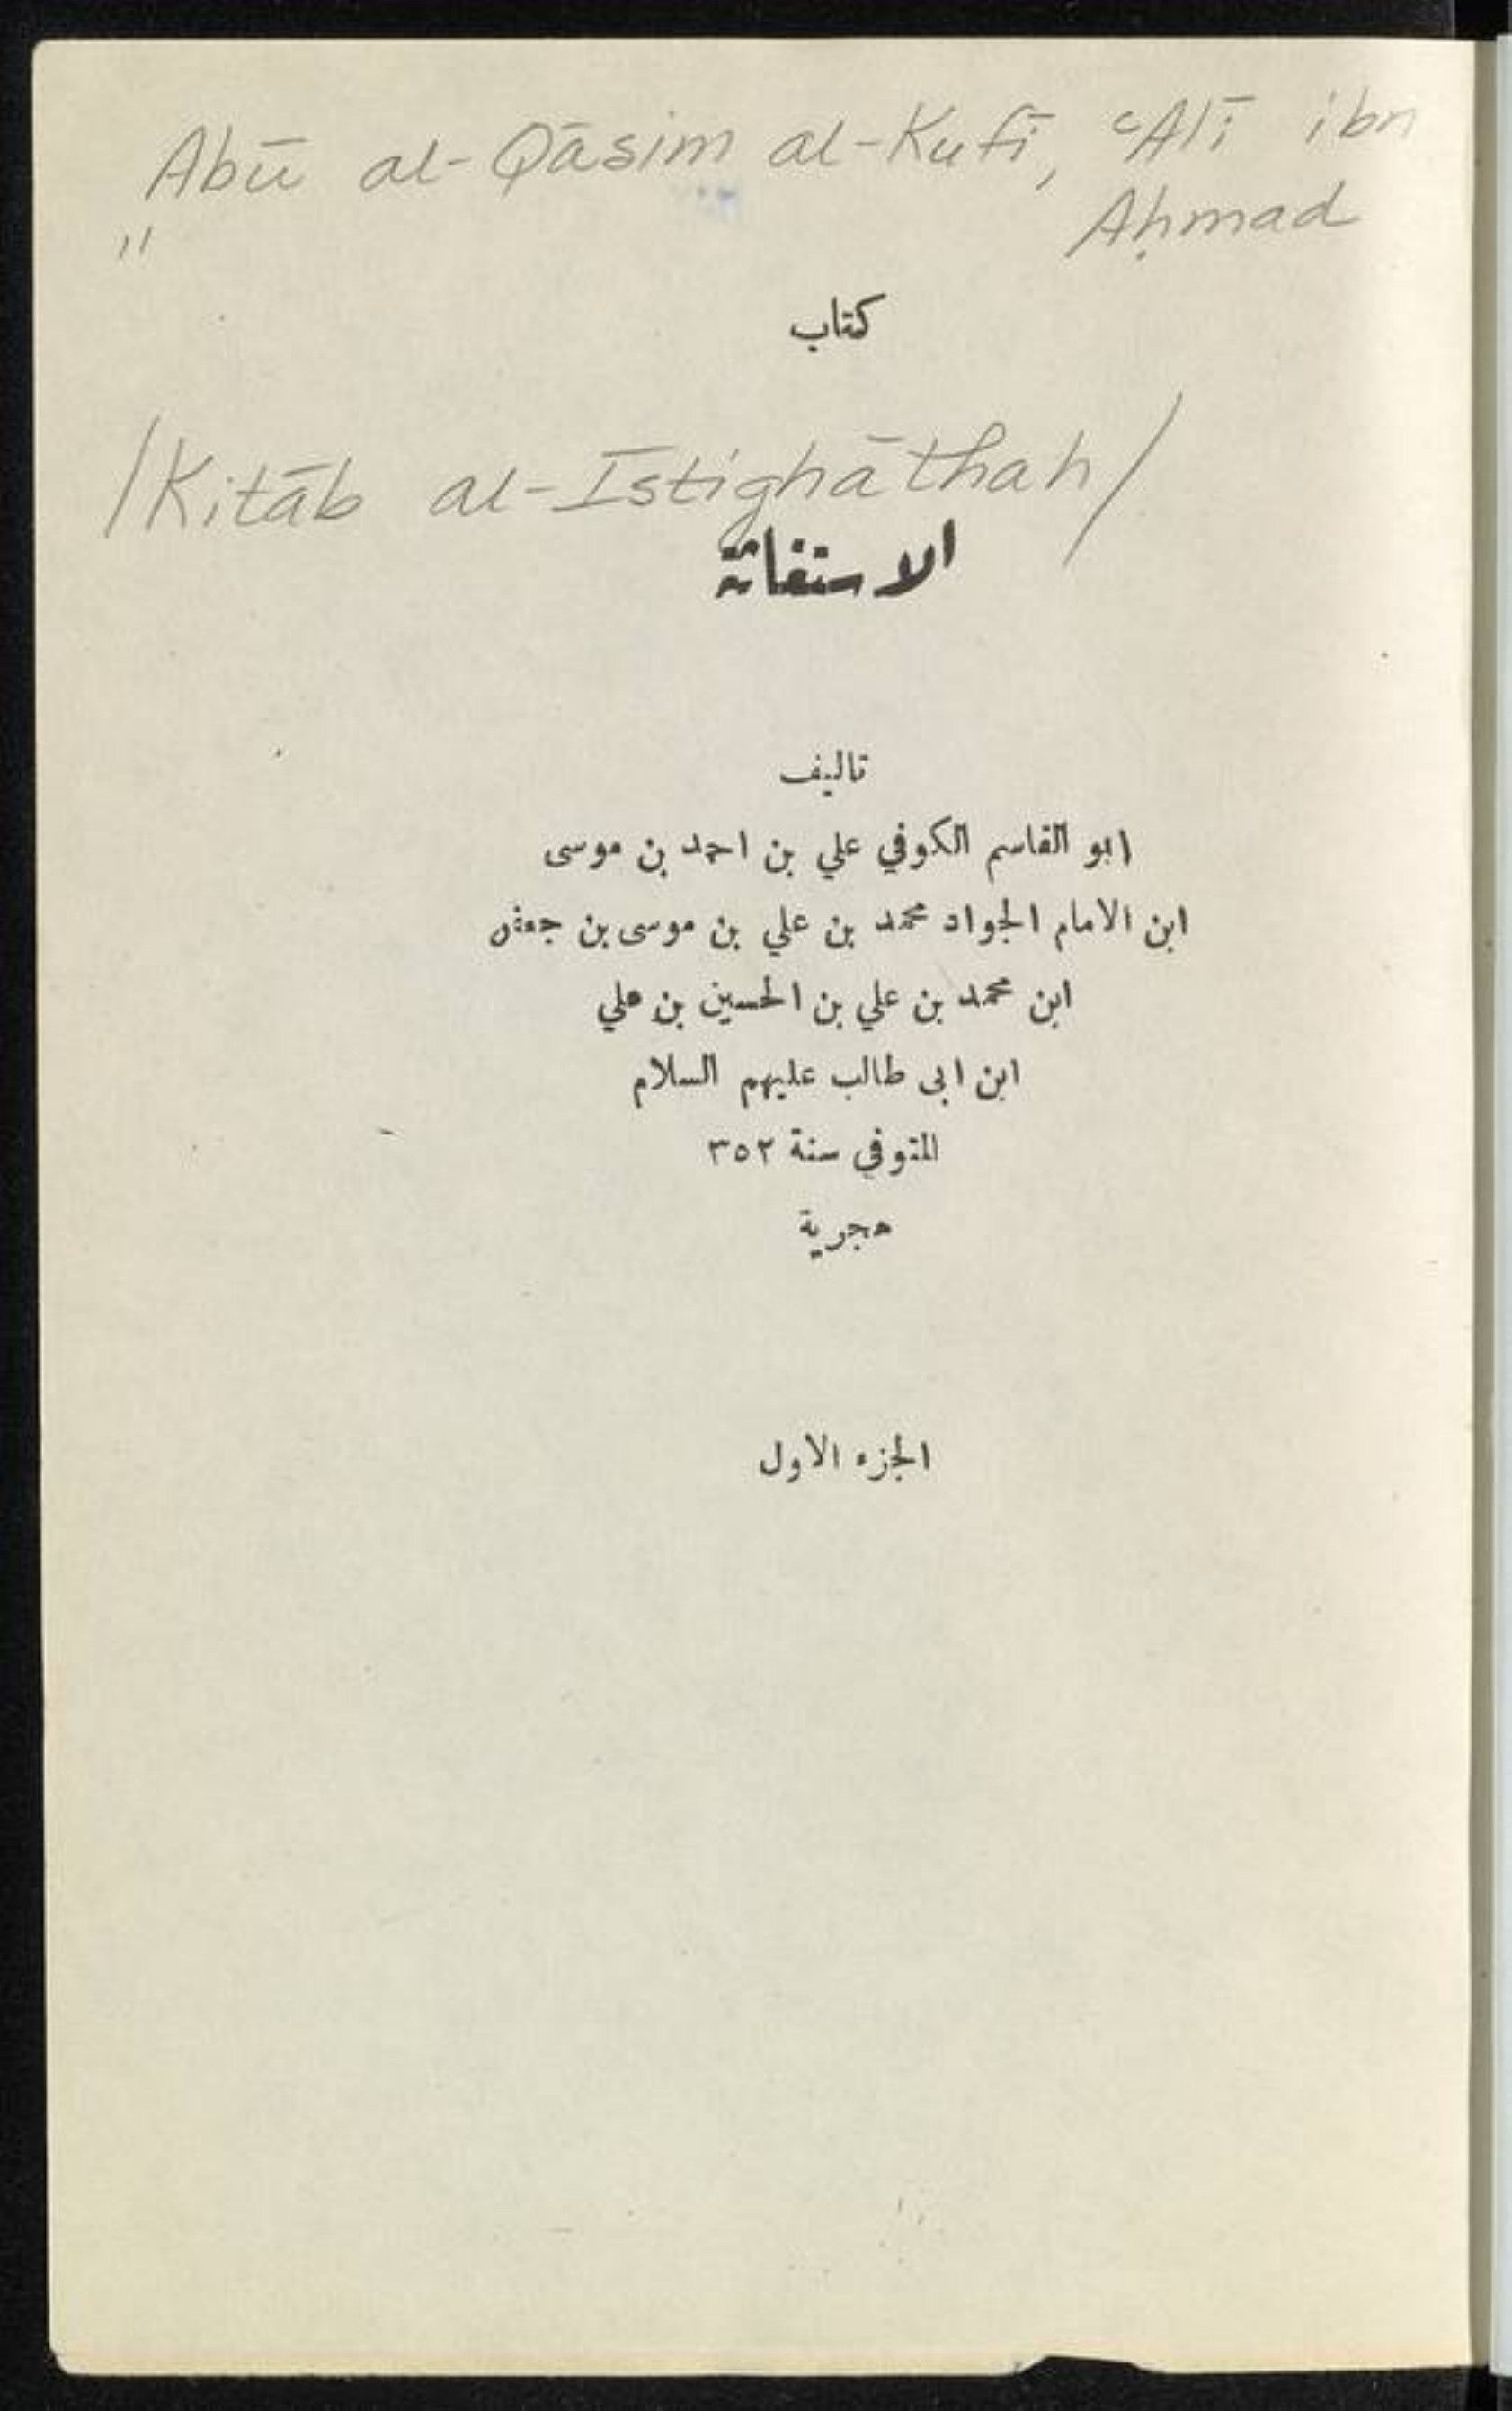 Abū al-Qāsim al-Kufī, ʿAlī ibn
Aḥmad
"
كتاب
/Kitāb al-Istighāthah/
الاستغاثة
تاليف
ابو القاسم الكوفي علي بن احمد بن موسى
ابن الامام الجواد محمد بن علي بن موسى بن جعفر
ابن محمد بن علي بن الحسين بن علي
ابن ابى طالب عليهم السلام
المتوفي سنة ٣٥٢
هجرية
الجزء الاول